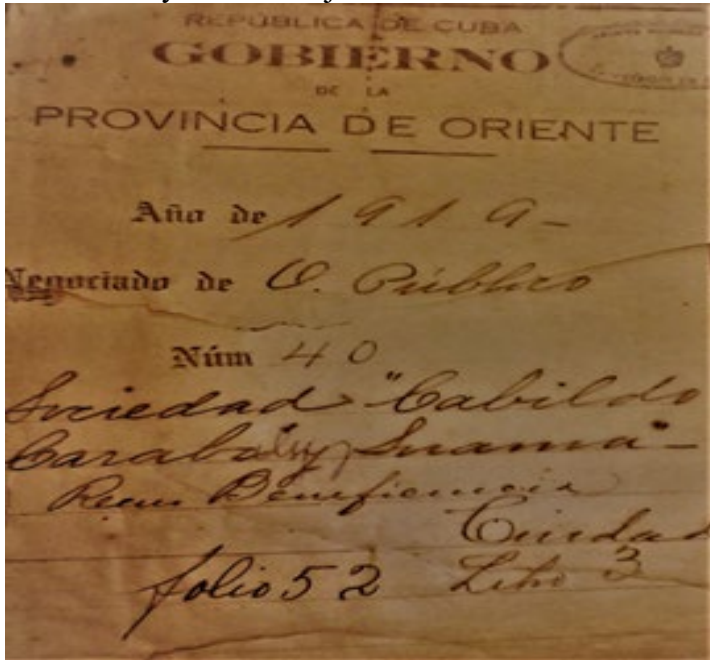 REPÚBLICA DE CUBA
GOBIERNO
DE LA
PROVINCIA DE ORIENTE
Año de 1919-
Negociado de O. Público
Núm 40
Sociedad "Cabildo
Carabalí y Suama"-
Beneficencia
Ciudad
folio 52 Libro 3